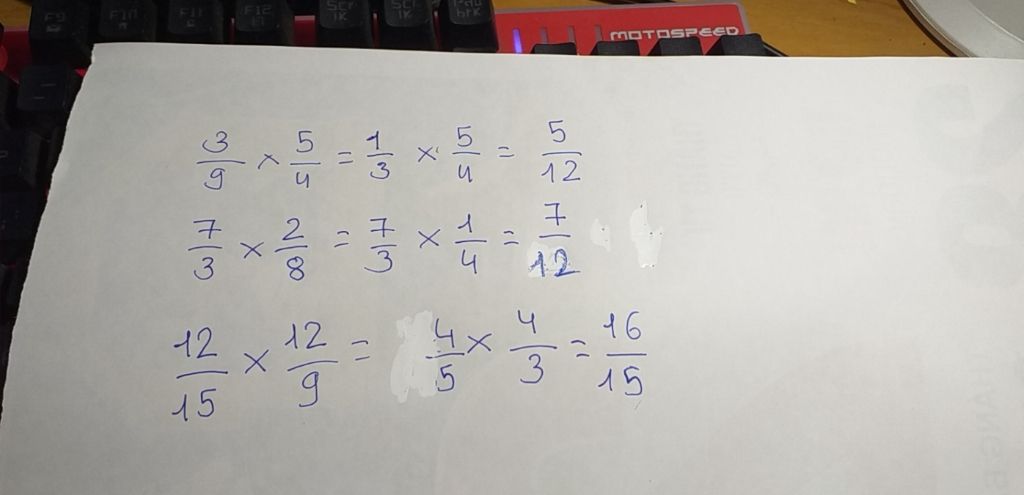 F9 F10 F11 F12 Scr lK
MOTOSPEED
3/9 × 5/4 = 1/3 × 5/4 = 5/12
7/3 × 2/8 = 7/3 × 1/4 = 7/12
12/15 × 12/9 = 4/5 × 4/3 = 16/15